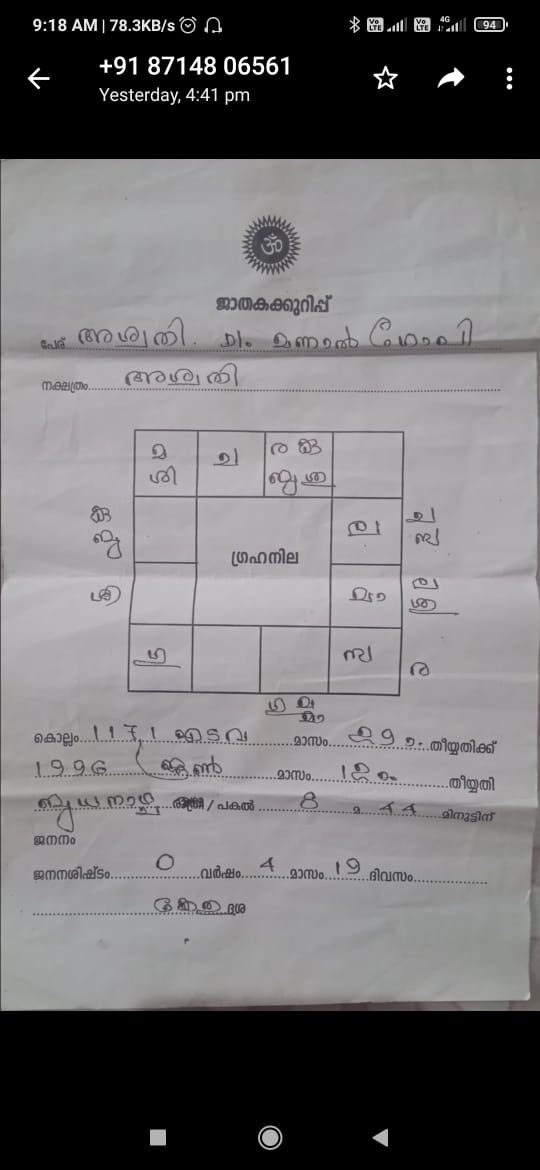 9:18 AM | 78.3KB/s
4G
94
+91 87148 06561
Yesterday, 4:41 pm
ॐ
ജാതകക്കുറിപ്പ്
പേര് അശ്വതി. D/o
നക്ഷത്രം അശ്വതി
മ ച ര കു
ശി ബു ശു
കു ച
ബു
ഗ്രഹനില
ശി മാ
ശു
ഗു ര
ഗു
മാ
കൊല്ലം 1171 ഇടവ മാസം 29 ാം തീയ്യതിക്ക്
1996 ജൂൺ മാസം 12 ാം തീയ്യതി
ബുധനാഴ്ച രാത്രി / പകൽ 8 മ 44 മിനുട്ടിന്
ജനനം
ജനനശിഷ്ടം 0 വർഷം 4 മാസം 19 ദിവസം
കേതു ദശ